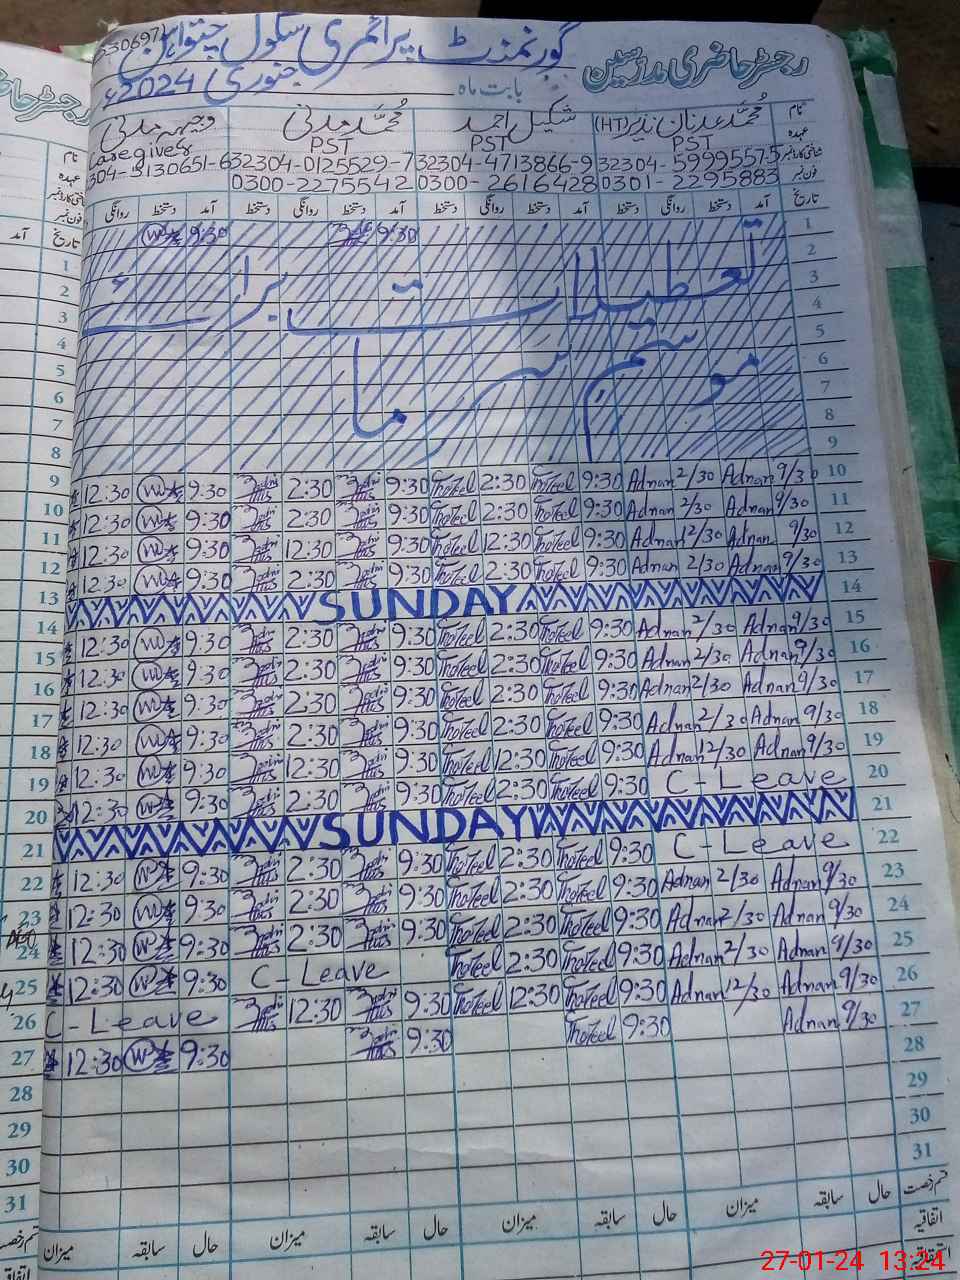 رجسٹر حاضری مدرسین گورنمنٹ پرائمری سکول
بابت ماہ جنوری 2024ء
نام محمد عدنان نذیر (HT) شکیل احمد محمد مدنی
عہدہ PST PST PST Caregiver
شناختی کارڈ نمبر 32304-5999557-5 32304-4713866-9 32304-0125529-7 304-5130651-6
فون نمبر 0301-2295883 0300-2616428 0300-2275542
تاریخ آمد دستخط روانگی دستخط آمد دستخط روانگی دستخط آمد دستخط روانگی دستخط آمد دستخط روانگی
1 9:30 9:30
2
3 تعطیلات برائے
4
5
6 موسم سرما
7
8
9
10 9/30 Adnan 2/30 Adnan 9:30 2:30 9:30 2:30 9:30 12:30
11 9/30 Adnan 2/30 Adnan 9:30 2:30 9:30 2:30 9:30 12:30
12 9/30 Adnan 12/30 Adnan 9:30 12:30 9:30 12:30 9:30 12:30
13 9/30 Adnan 2/30 Adnan 9:30 2:30 9:30 2:30 9:30 12:30
14 SUNDAY
15 9/30 Adnan 2/30 Adnan 9:30 2:30 9:30 2:30 9:30 12:30
16 9/30 Adnan 2/30 Adnan 9:30 2:30 9:30 2:30 9:30 12:30
17 9/30 Adnan 2/30 Adnan 9:30 2:30 9:30 2:30 9:30 12:30
18 9/30 Adnan 2/30 Adnan 9:30 2:30 9:30 2:30 9:30 12:30
19 9/30 Adnan 12/30 Adnan 9:30 12:30 9:30 12:30 9:30 12:30
20 C-Leave 9:30 2:30 9:30 2:30 9:30 12:30
21 SUNDAY
22 C-Leave 9:30 2:30 9:30 2:30 9:30 12:30
23 9/30 Adnan 2/30 Adnan 9:30 2:30 9:30 2:30 9:30 12:30
24 9/30 Adnan 2/30 Adnan 9:30 2:30 9:30 2:30 9:30 12:30
25 9/30 Adnan 2/30 Adnan 9:30 2:30 C-Leave 9:30 12:30
26 9/30 Adnan 12/30 Adnan 9:30 12:30 9:30 12:30 C-Leave
27 9/30 Adnan 9:30 9:30 9:30 12:30
28
29
30
31
قسم رخصت حال سابقہ میزان حال سابقہ میزان حال سابقہ میزان حال سابقہ میزان
اتفاقیہ
رجسٹر حا
نام
عہدہ
شناختی کارڈ نمبر
فون نمبر
تاریخ آمد
1
2
3
4
5
6
7
8
9
10
11
12
13
14
15
16
17
18
19
20
21
22
23
24
25
26
27
28
29
30
31
قسم رخصت
27-01-24 13:24